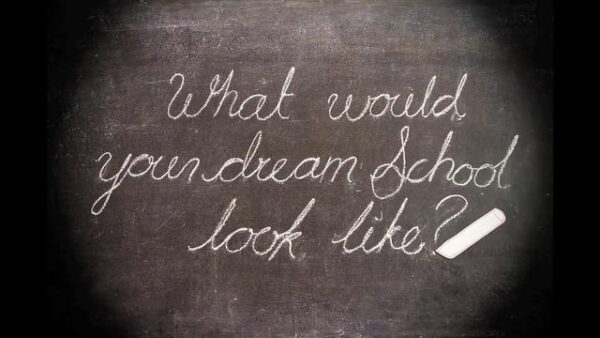 What would
your dream School
look like?